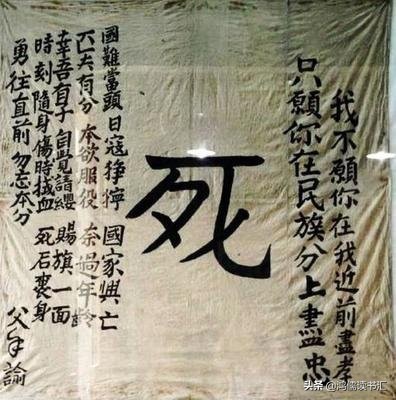 我不願你在我近前盡孝
只願你在民族分上盡忠
死
國難當頭 日寇猙獰 國家興亡
匹夫有分 本欲服役 奈過年齡
幸吾有子 自覺請纓 賜旗一面
時刻隨身 傷時拭血 死后裹身
勇往直前 勿忘本分
父手諭
头条 @鸿儒读书汇